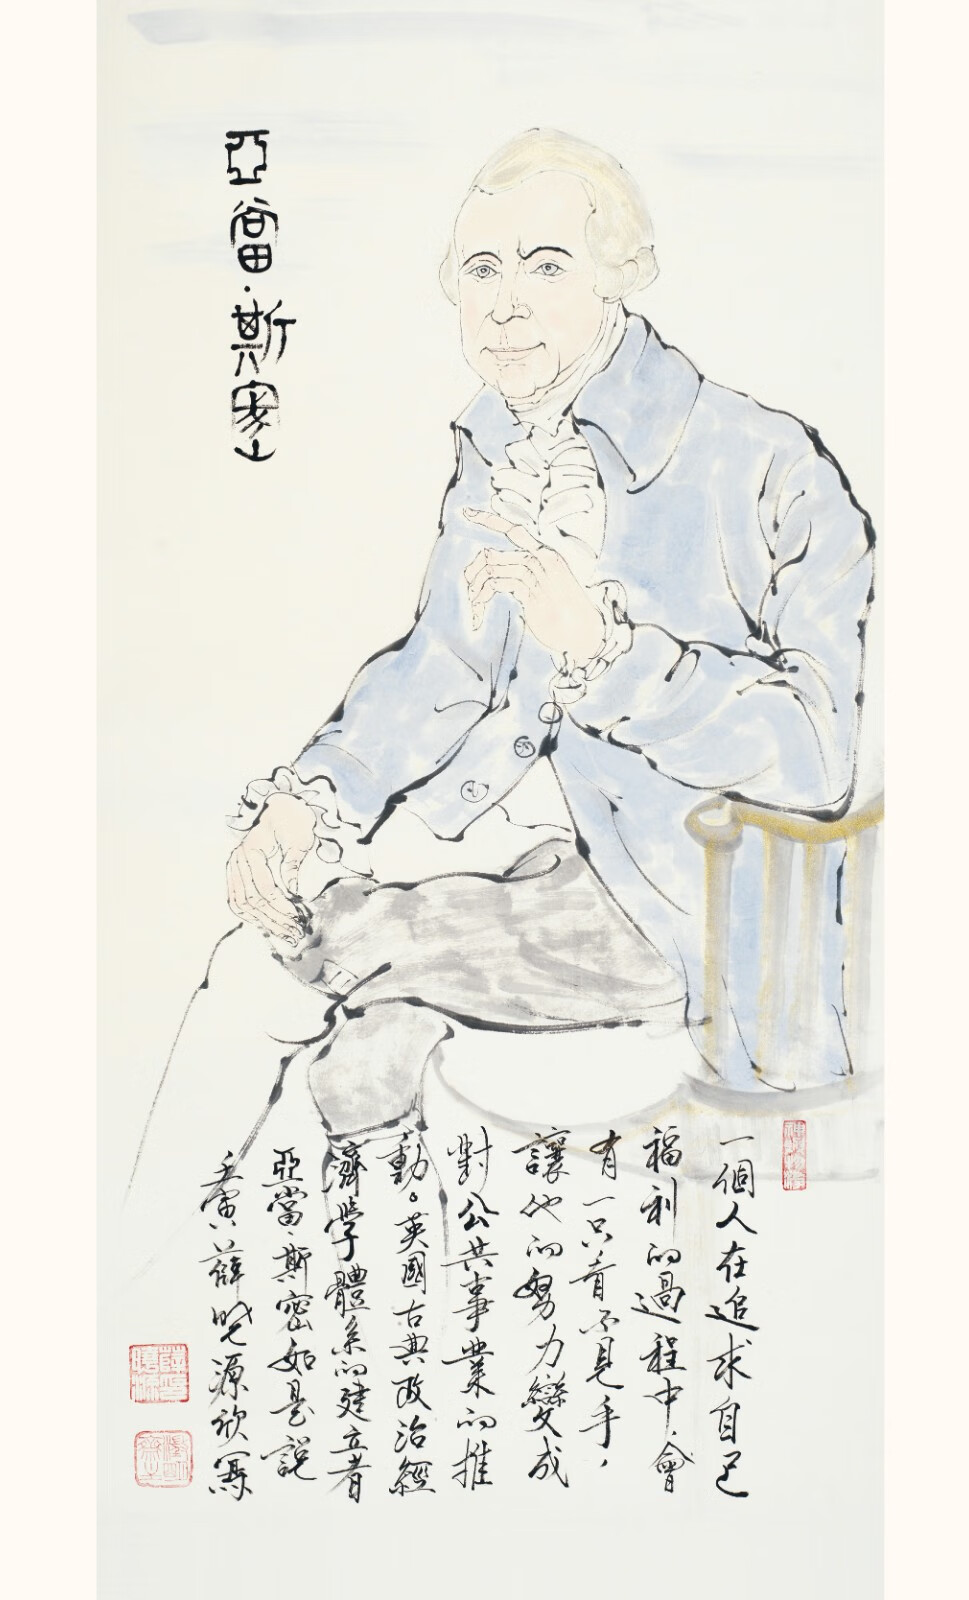 亞當·斯密
一個人在追求自己
福利的過程中,會
有一只看不見手,
讓他的努力變成
對公共事業的推
動。英國古典政治經
濟學體系的建立者
亞當·斯密如是說
壬寅薛曉源欣寫